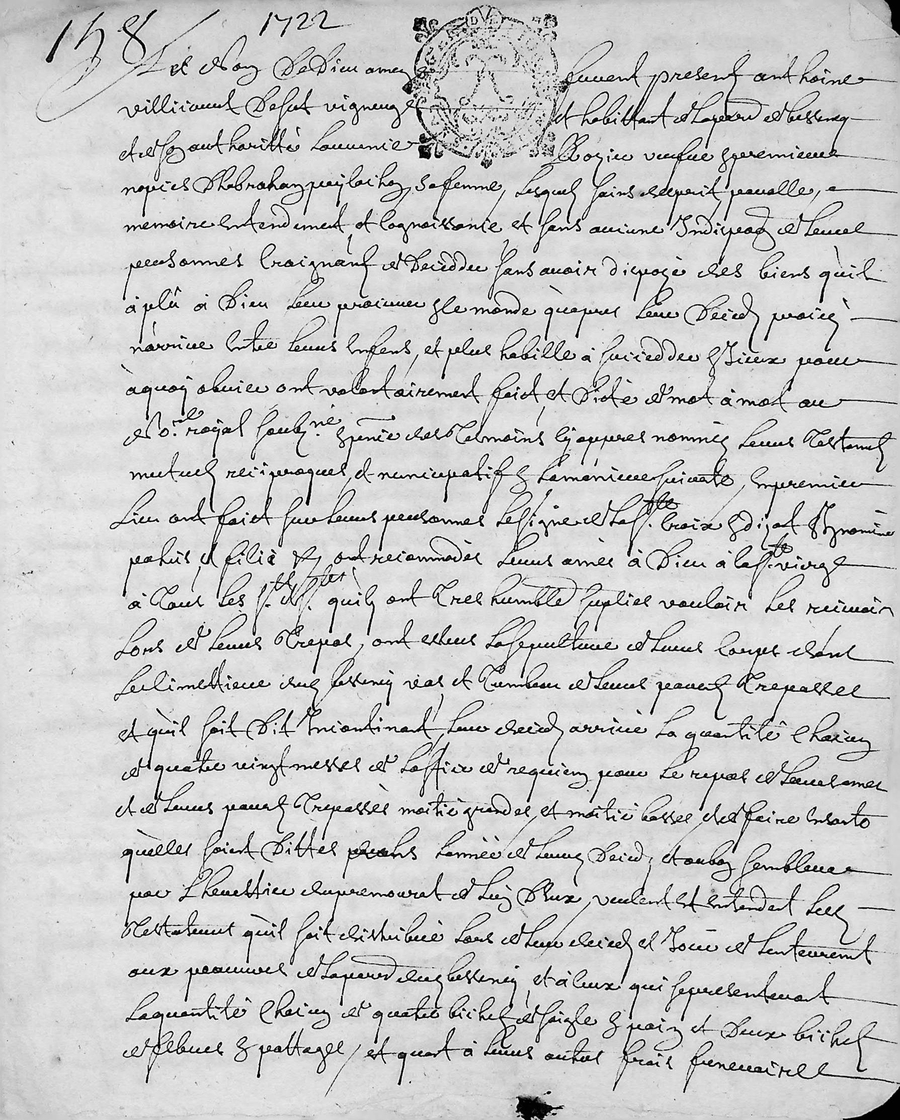 158 1722
Et Nom De Dieu amen furent present anthoine
villiemont de fut vigneug et habittant de la parr de bessenq
et de son authoritté louverie Rozier vefve en premieres
nopces d'habraham sa femme, lesquels sains desprit parolle,
memoire entendement et cognoissance et sans aucune Indispon de leurs
personnes Craignant de decedder sans avoir dispozé des biens quil
à plû à Dieu leur procurer en le monde quapres leur Deceds procès
n'arrive entre leurs enfens, et plus habille à succedder en Iceux pour
à quoy obvier ont volontairement faict et Dicté de mot à mot au
No.re royal soubz.né en p.nce des Tesmoins cy appres nommés leurs Testament
mutuel reciproques, et nuncupatif en la maniere suivante, En premier
Lieu ont faict sur leurs personnes le signe de la S.te Croix en dizant In nomine
patris, et filii &c, ont recommodés leurs ames à Dieu à la S.te vierge
à Tous les S.ts et S.tes quils ont Tres humblem supliés vouloir les recevoir
Lors de leurs Trepas, ont esleus la sepulture de leurs corps dans
Le Cimettiere dud bessenq vas et Tumbeau de leurs parents Trepassés
et quil soit Dit Incontinant leur deceds arrivé la quantité Chascun
de quatre vingt messes de l'office de requiem pour le repos de leurs ames
et de leurs parents Trepassés moitié grandes, et moitié basses, et de faire ensorte
quelles soient Dittes dans l'année de leurs Deceds, et au bon semblence
par L'heritier du premourat de luy D'eux, veulent et entendent lesd
Testateurs quil soit distribué Lors de leur deceds et Jour de l'enterremt
aux pauvres de la parr dud bessenq, et à ceux qui se presenteront
La quantité Chascun de quatre bichets de seigle en pain et Deux bichets
de febves en pottages, et quant à leurs autres frais funeraires